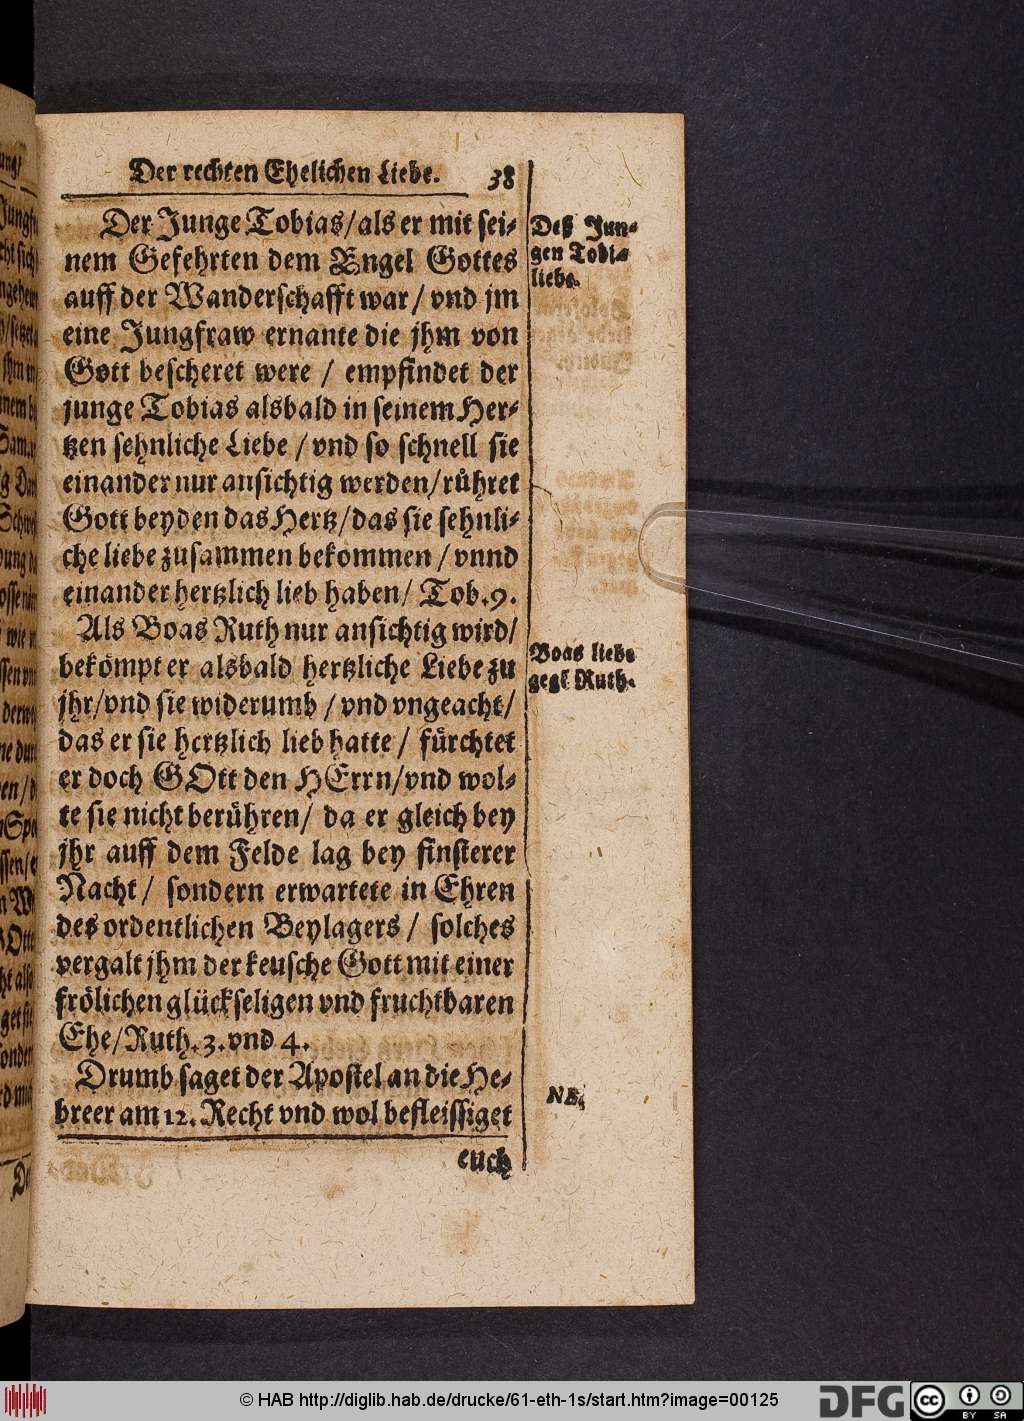 Der rechten Ehelichen Liebe. 38
Der Junge Tobias/als er mit sei-
nem Gefehrten dem Engel Gottes
auff der Wanderschafft war/ vnd jm
eine Jungfraw ernante die jhm von
Gott bescheret were / empfindet der
junge Tobias alsbald in seinem Her-
tzen sehnliche Liebe / vnd so schnell sie
einander nur ansichtig werden/rühret
Gott beyden das Hertz/das sie sehnli-
che liebe zusammen bekommen / vnnd
einander hertzlich lieb haben/ Tob.9.
Als Boas Ruth nur ansichtig wird/
bekömpt er alsbald hertzliche Liebe zu
jhr/vnd sie widerumb / vnd vngeacht/
das er sie hertzlich lieb hatte / fürchtet
er doch GOtt den HErrn/vnd wol-
te sie nicht berühren/ da er gleich bey
jhr auff dem Felde lag bey finsterer
Nacht/ sondern erwartete in Ehren
des ordentlichen Beylagers / solches
vergalt jhm der keusche Gott mit einer
frölichen glückseligen vnd fruchtbaren
Ehe/Ruth.3.vnd 4.
Drumb saget der Apostel an die He-
breer am 12. Recht vnd wol befleissiget
euch
Deß Jun-
gen Tobi-
liebe.
Boas liebe
gegē Ruth.
NB.
© HAB http://diglib.hab.de/drucke/61-eth-1s/start.htm?image=00125
DFG
cc
BY SA